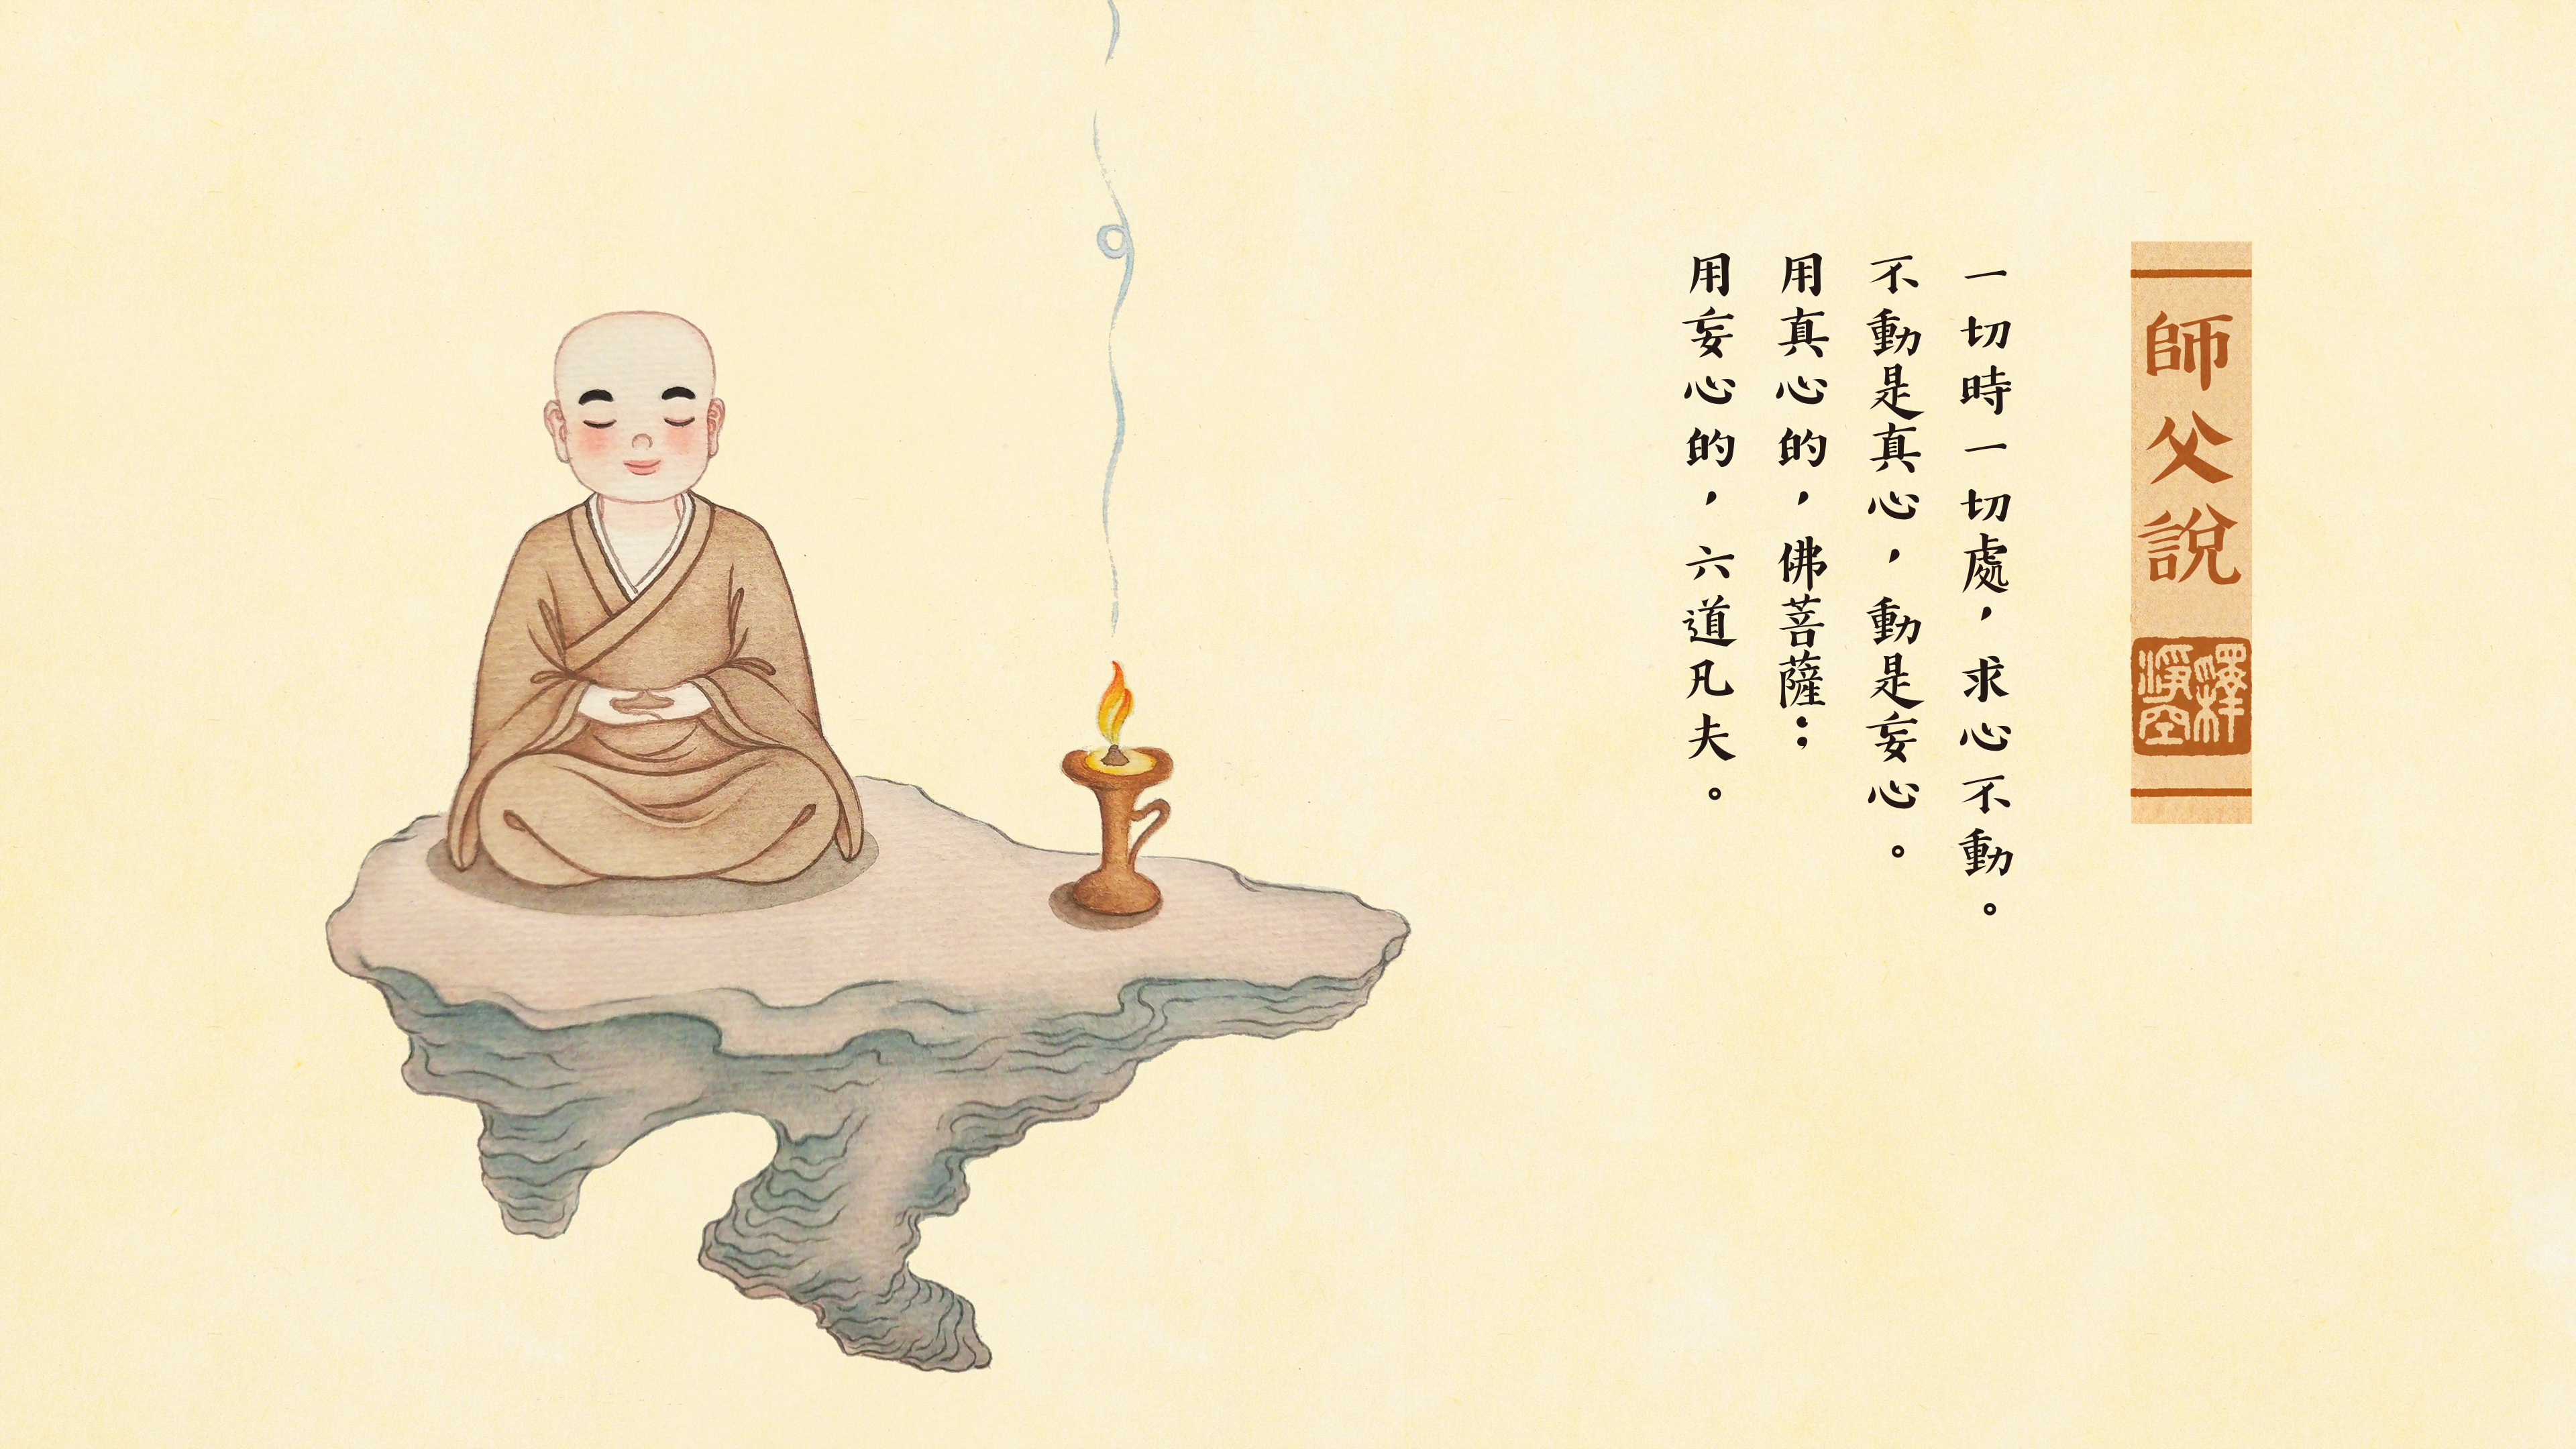 師父說
釋淨空
一切時一切處，求心不動。
不動是真心，動是妄心。
用真心的，佛菩薩；
用妄心的，六道凡夫。